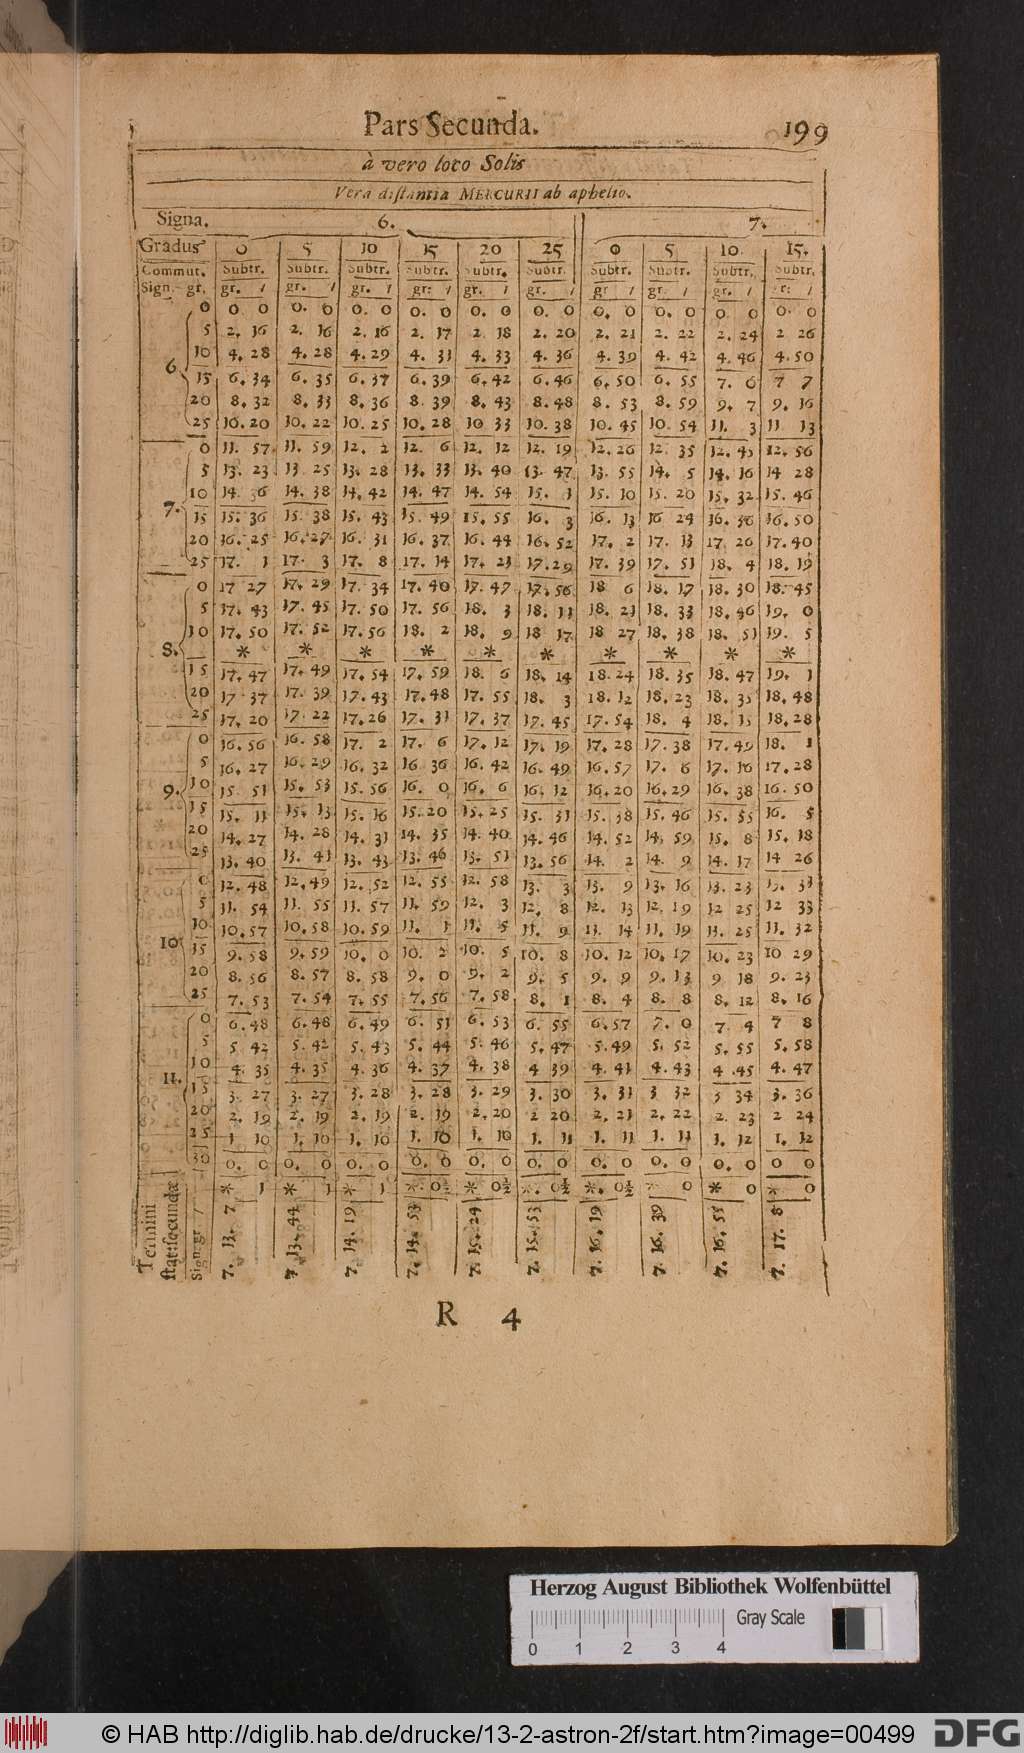 Pars Secunda. 199
à vero loco Solis
Vera distantia MERCURII ab aphelio.
Signa. 6. 7.
Gradus 0 5 10 15 20 25 0 5 10 15.
Commut. Subtr. Subtr. Subtr. Subtr. Subtr. Subtr. Subtr. Subtr. Subtr. Subtr.
Sign. gr. gr. / gr. / gr. / gr: / gr. / gr. / gr / gr. / gr. / gr: /
0 0 0 0. 0 0. 0 0. 0 0. 0 0. 0 0. 0 0. 0 0 0 0. 0
5 2. 16 2. 16 2. 16 2. 17 2 18 2. 20 2. 21 2. 22 2. 24 2 26
6 10 4. 28 4. 28 4. 29 4. 31 4. 33 4. 36 4. 39 4. 42 4. 46 4. 50
15 6. 34 6. 35 6. 37 6. 39 6. 42 6. 46 6. 50 6. 55 7. 6 7 7
20 8. 32 8. 33 8. 36 8 39 8. 43 8. 48 8. 53 8. 59 9. 7 9. 16
25 10. 20 10. 22 10. 25 10. 28 10 33 10. 38 10. 45 10. 54 11. 3 11 13
0 11. 57 11. 59 12. 2 12. 6 12. 12 12. 19 12. 26 12. 35 12. 45 12. 56
5 13. 23 13 25 13. 28 13. 33 13. 40 13. 47 13. 55 14. 5 14. 16 14 28
7. 10 14. 36 14. 38 14. 42 14. 47 14. 54 15. 1 15. 10 15. 20 15. 32 15. 46
15 15. 36 15. 38 15. 43 15. 49 15. 55 16. 3 16. 13 16 24 16. 36 16. 50
20 16. 25 16. 27 16. 31 16. 37 16. 44 16. 52 17. 2 17. 13 17 26 17. 40
25 17. 1 17. 3 17. 8 17. 14 17. 21 17. 29 17. 39 17. 51 18. 4 18. 19
0 17 27 17. 29 17. 34 17. 40 17. 47 17. 56 18 6 18. 17 18. 30 18. 45
5 17. 43 17. 45 17. 50 17. 56 18. 3 18. 11 18. 21 18. 33 18. 46 19. 0
8. 10 17. 50 17. 52 17. 56 18. 2 18. 9 18 17 18 27 18. 38 18. 51 19. 5
* * * * * * * * * *
15 17. 47 17. 49 17. 54 17. 59 18. 6 18. 14 18. 24 18. 35 18. 47 19. 1
20 17 37 17. 39 17. 43 17. 48 17. 55 18. 3 18. 12 18. 23 18. 35 18. 48
25 17. 20 17. 22 17. 26 17. 31 17. 37 17. 45 17. 54 18. 4 18. 15 18. 28
0 16. 56 16. 58 17. 2 17. 6 17. 12 17. 19 17. 28 17. 38 17. 49 18. 1
5 16. 27 16. 29 16. 32 16 36 16. 42 16. 49 16. 57 17. 6 17. 16 17. 28
9. 10 15 51 15. 53 15. 56 16. 0 16. 6 16. 12 16. 20 16. 29 16. 38 16. 50
15 15. 11 15. 13 15. 16 15. 20 15. 25 15. 31 15. 38 15. 46 15. 55 16. 5
20 14. 27 14. 28 14. 31 14. 35 14. 40 14. 46 14. 52 14. 59 15. 8 15. 18
25 13. 40 13. 41 13. 43 13. 46 13. 51 13. 56 14. 2 14. 9 14. 17 14 26
0 12. 48 12. 49 12. 52 12. 55 12. 58 13. 3 13. 9 13. 16 13. 23 13. 31
5 11. 54 11. 55 11. 57 11. 59 12. 3 12. 8 12. 13 12. 19 12 25 12 33
10 10 10. 57 10. 58 10. 59 11. 1 11. 5 11. 9 11. 14 11. 19 11. 25 11. 32
15 9. 58 9. 59 10. 0 10. 2 10. 5 10. 8 10. 12 10. 17 10. 23 10 29
20 8. 56 8. 57 8. 58 9. 0 9. 2 9. 5 9. 9 9. 13 9 18 9. 23
25 7. 53 7. 54 7. 55 7. 56 7. 58 8. 1 8. 4 8. 8 8. 12 8. 16
0 6. 48 6. 48 6. 49 6. 51 6. 53 6. 55 6. 57 7. 0 7 4 7 8
5 5 42 5. 42 5. 43 5. 44 5. 46 5. 47 5. 49 5. 52 5. 55 5. 58
11. 10 4. 35 4. 35 4. 36 4. 37 4. 38 4 39 4. 41 4. 43 4. 45 4. 47
15 3. 27 3. 27 3. 28 3. 28 3. 29 3. 30 3. 31 3 32 3 34 3. 36
20 2. 19 2. 19 2. 19 2. 19 2. 20 2 20 2. 21 2. 22 2. 23 2 24
25 1 10 1. 10 1. 10 1. 10 1. 10 1. 11 1. 11 1. 11 1. 12 1. 12
30 0. 0 0. 0 0. 0 0. 0 0. 0 0. 0 0. 0 0. 0 0. 0 0 0
* 1 * 1 * 1 * 0½ * 0½ * 0½ * 0½ * 0 * 0 * 0
Termini stat: secundæ Sign. gr / 7. 13. 7 7 13. 44 7. 14. 19 7. 14. 53 7. 15. 24 7. 15. 53 7. 16. 19 7. 16. 39 7. 16. 55 7. 17. 8
R 4
Herzog August Bibliothek Wolfenbüttel
0 1 2 3 4 Gray Scale
© HAB http://diglib.hab.de/drucke/13-2-astron-2f/start.htm?image=00499 DFG